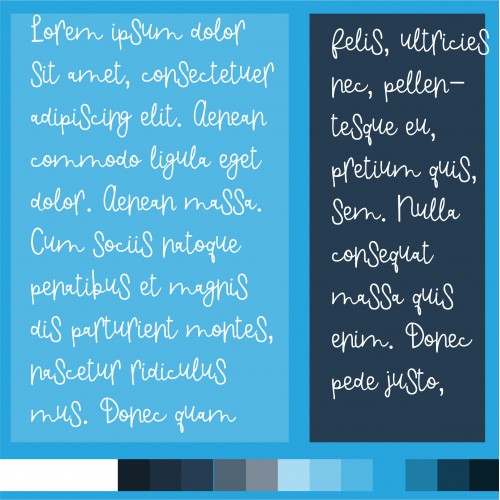 Lorem ipsum dolor
sit amet, consectetuer
adipiscing elit. Aenean
commodo ligula eget
dolor. Aenean massa.
Cum sociis natoque
penatibus et magnis
dis parturient montes,
nascetur ridiculus
mus. Donec quam
felis, ultricies
nec, pellen-
tesque eu,
pretium quis,
sem. Nulla
consequat
massa quis
enim. Donec
pede justo,